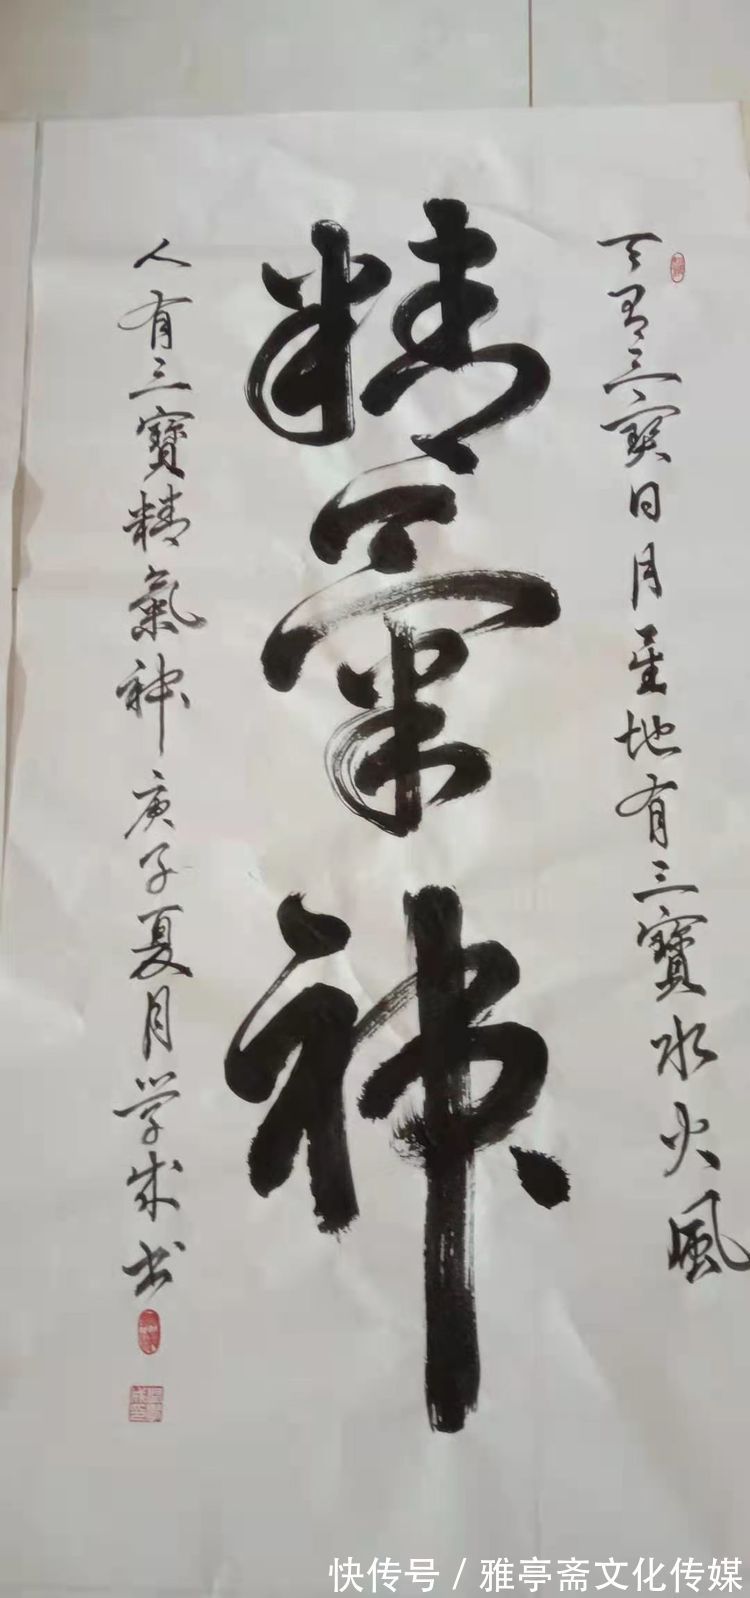 天有三寳日月星地有三寶水火風
精氣神
人有三寶精氣神庚子夏月学成书
快传号 / 雅亭斋文化传媒